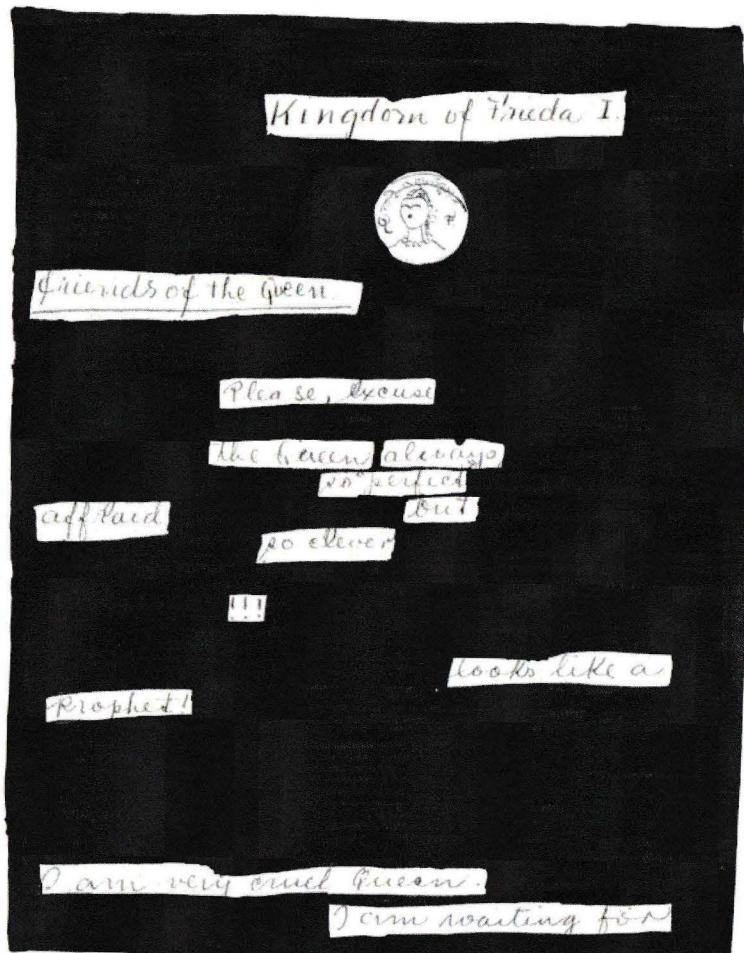 Kingdom of Frieda I.
Q F
friends of the Queen.
Please, excuse
the Queen always
so perfect
affraid but
so clever
!!!
looks like a
Prophet!
I am very cruel Queen.
I am waiting for